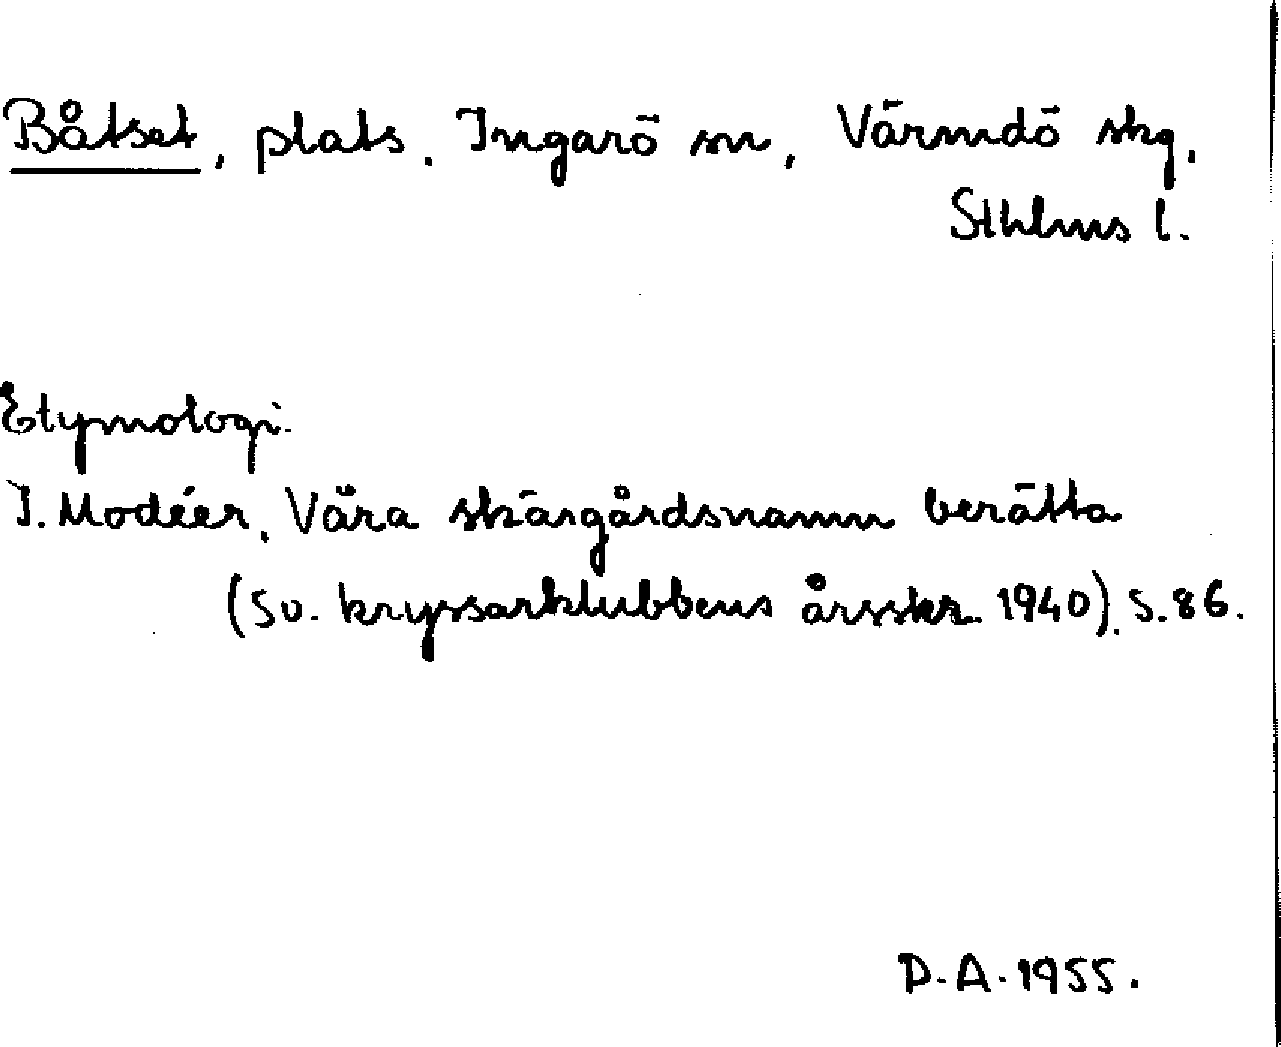 Båtset, plats. Ingarö sn, Värmdö skg.
Sthlms l.
Etymologi.
I. Modéer, Våra skärgårdsnamn berätta
(Sv. kryssarklubbens årsskr. 1940). S. 86.
D.A. 1955.